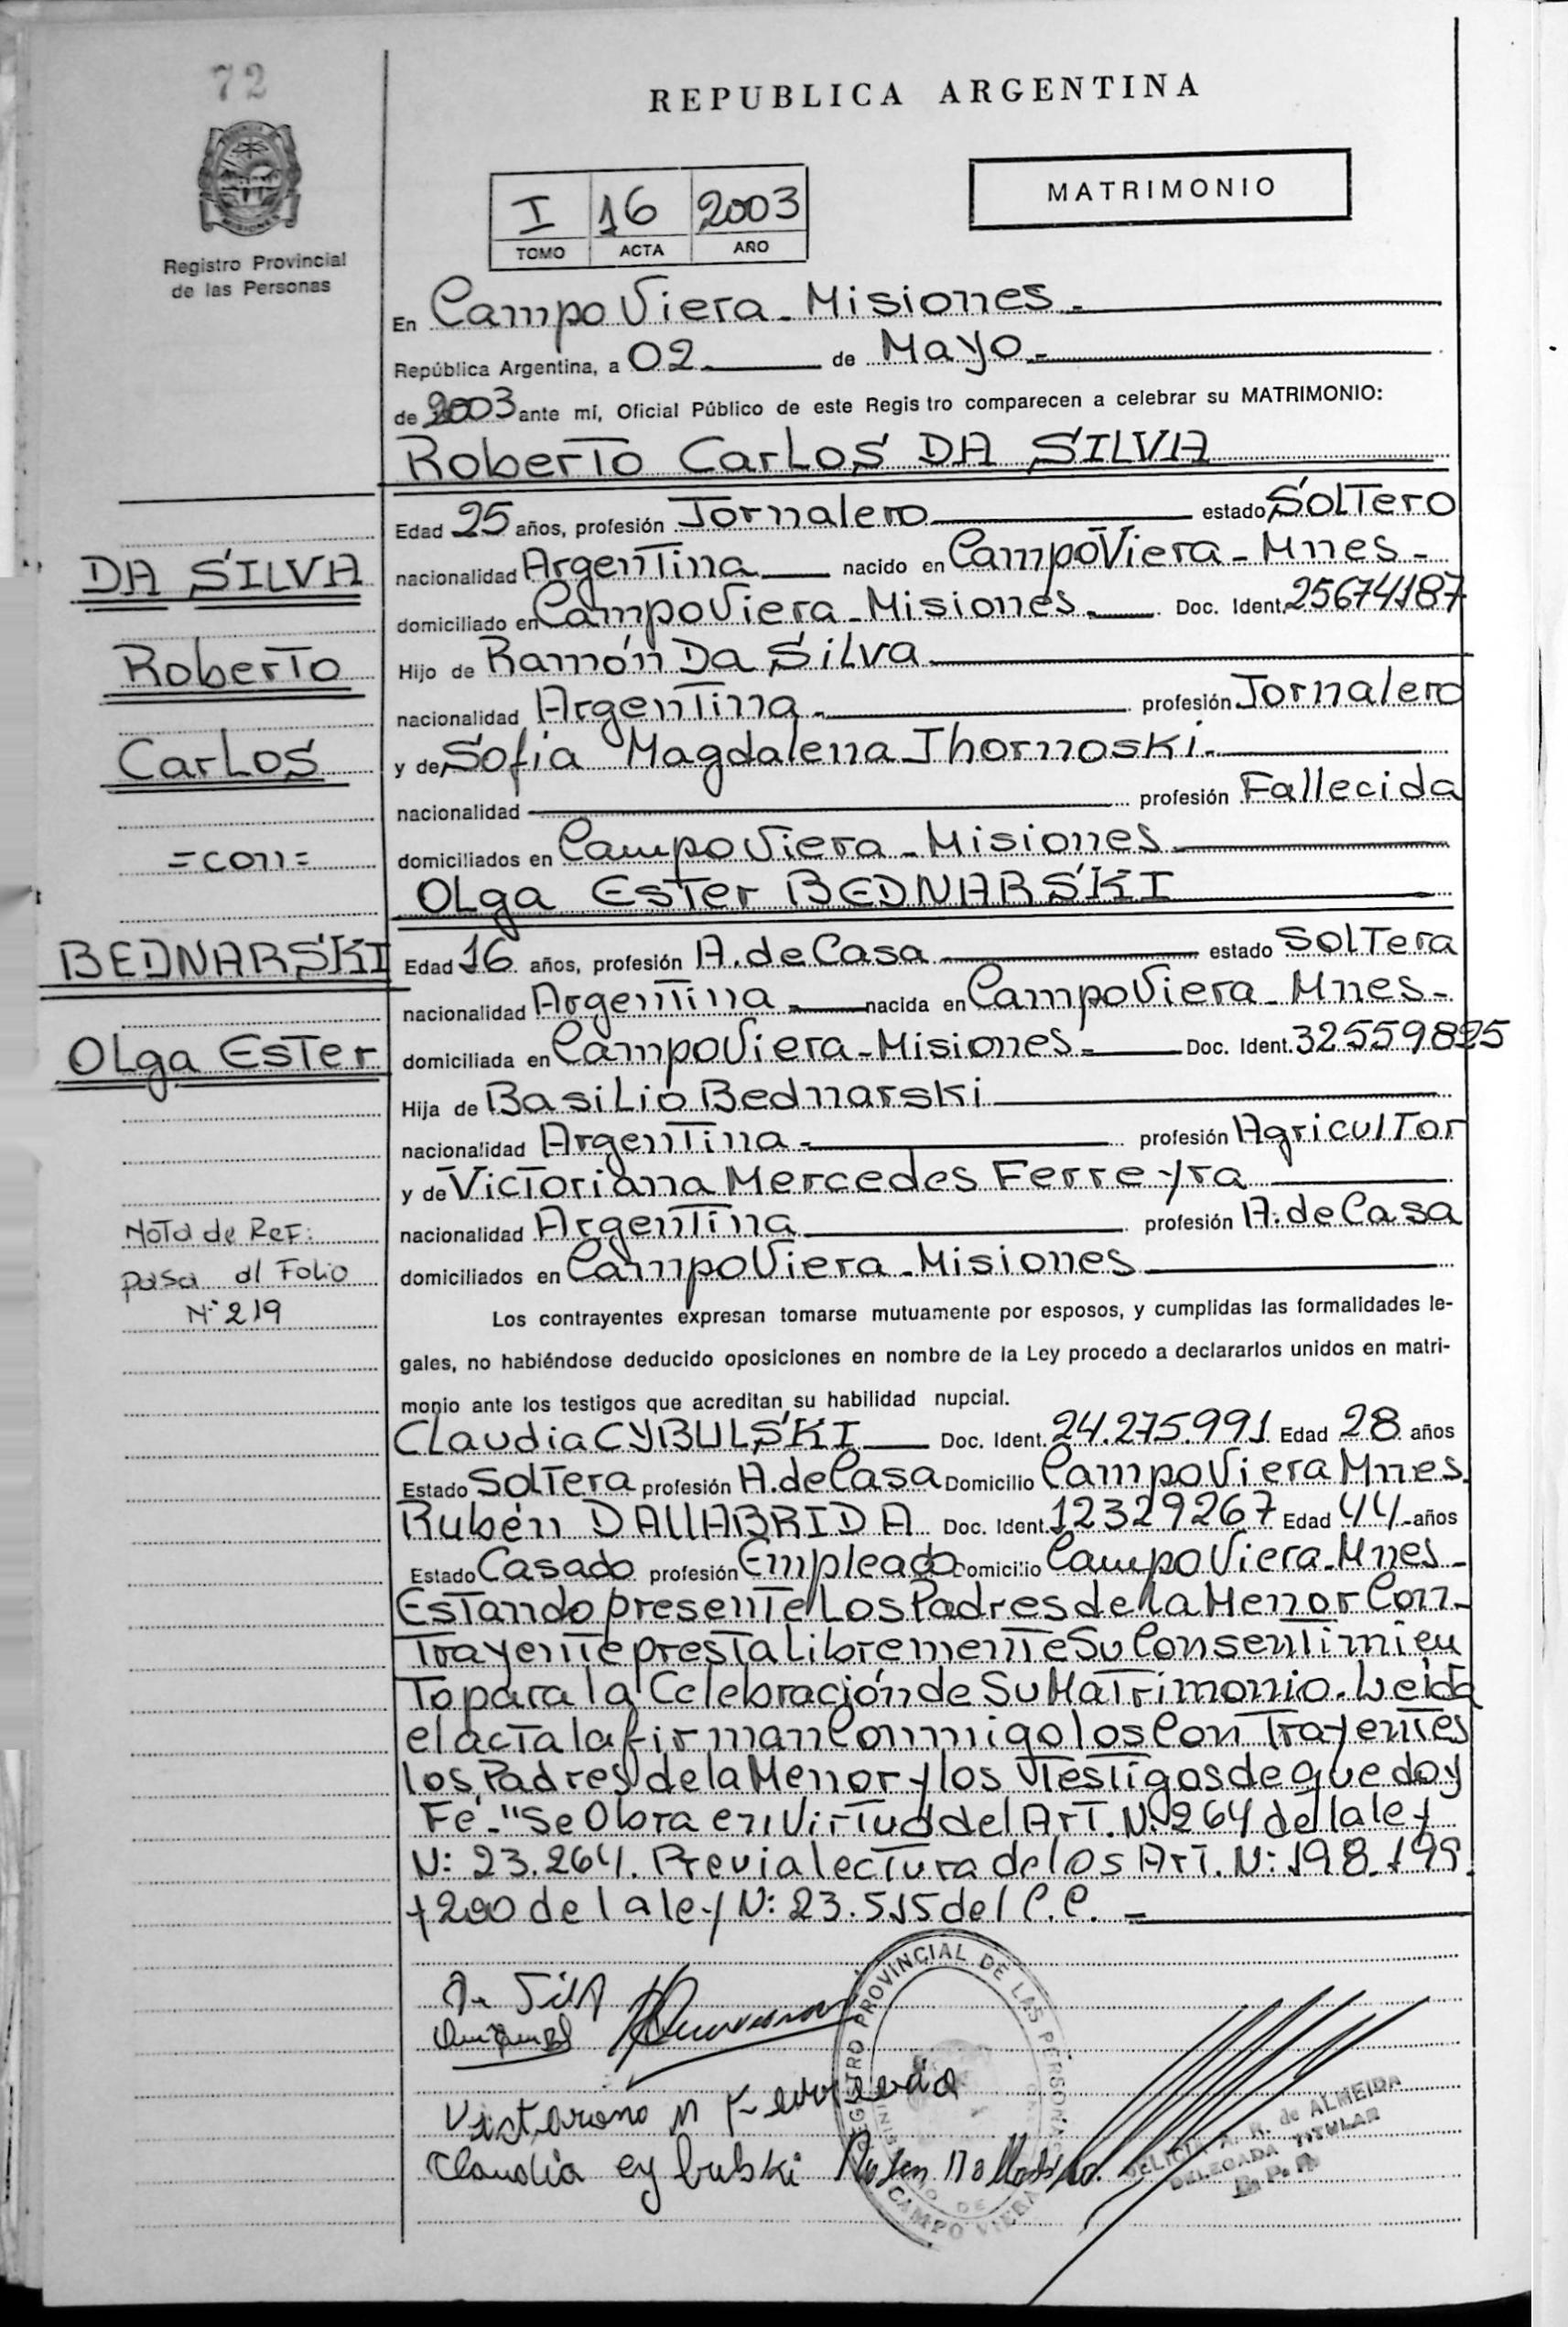 72
REPUBLICA ARGENTINA
MATRIMONIO
I 16 2003
TOMO ACTA AÑO
Registro Provincial
de las Personas
En Campo Viera - Misiones -
República Argentina, a 02 de Mayo -
de 2003 ante mí, Oficial Público de este Regis tro comparecen a celebrar su MATRIMONIO:
Roberto Carlos DA SILVA
Edad 25 años, profesión Jornalero estado Soltero
nacionalidad Argentina nacido en Campo Viera - Mnes -
domiciliado en Campo Viera - Misiones - Doc. Ident. 25674187
Hijo de Ramón Da Silva
nacionalidad Argentina - profesión Jornalero
y de Sofia Magdalena Thornoski -
nacionalidad profesión Fallecida
domiciliados en Campo Viera - Misiones
Olga Ester BEDNARSKI
Edad 16 años, profesión A. de Casa estado Soltera
nacionalidad Argentina - nacida en Campo Viera - Mnes -
domiciliada en Campo Viera - Misiones - Doc. Ident. 32559825
Hija de Basilio Bednarski
nacionalidad Argentina - profesión Agricultor
y de Victoriana Mercedes Ferreyra
nacionalidad Argentina profesión A. de Casa
domiciliados en Campo Viera - Misiones
Los contrayentes expresan tomarse mutuamente por esposos, y cumplidas las formalidades le-
gales, no habiéndose deducido oposiciones en nombre de la Ley procedo a declararlos unidos en matri-
monio ante los testigos que acreditan su habilidad nupcial.
Claudia CYBULSKI Doc. Ident. 24.275.991 Edad 28 años
Estado Soltera profesión A. de Casa Domicilio Campo Viera Mnes.
Rubén DALLABRIDA Doc. Ident. 12329267 Edad 44 - años
Estado Casado profesión Empleado Domicilio Campo Viera - Mnes -
Estando presente Los Padres de la Menor Con-
trayente presta libremente Su Consentimien
to para la Celebración de Su Matrimonio. Leida
el acta la firman Conmigo los Contrayentes
los Padres de la Menor y los Testigos de que doy
Fé - "Se Obra en Virtud del Art. N: 264 de la ley
N: 23.264. Previa lectura de los Art. N: 198 - 199
y 200 de la ley N: 23.515 del C.C. -
DA SILVA
Roberto
Carlos
= con =
BEDNARSKI
Olga Ester
Nota de Ref:
pasa al Folio
N° 219
Claudia Cybulski
REGISTRO PROVINCIAL DE LAS PERSONAS
CAMPO VIERA
DELICIA A. R. de ALMEIDA
DELEGADA TITULAR
R. P. P.